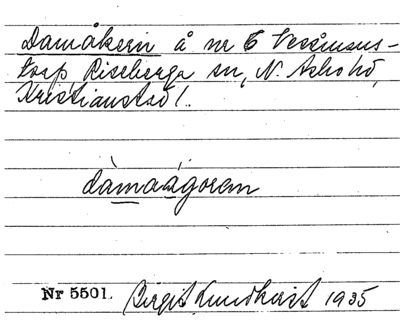 Damåkern å nr 6
torp Riseberga sn, N. Åsbo hd,
Kristianstad l.
dàmaågoren
Nr 5501. Birgit Lundkvist 1935